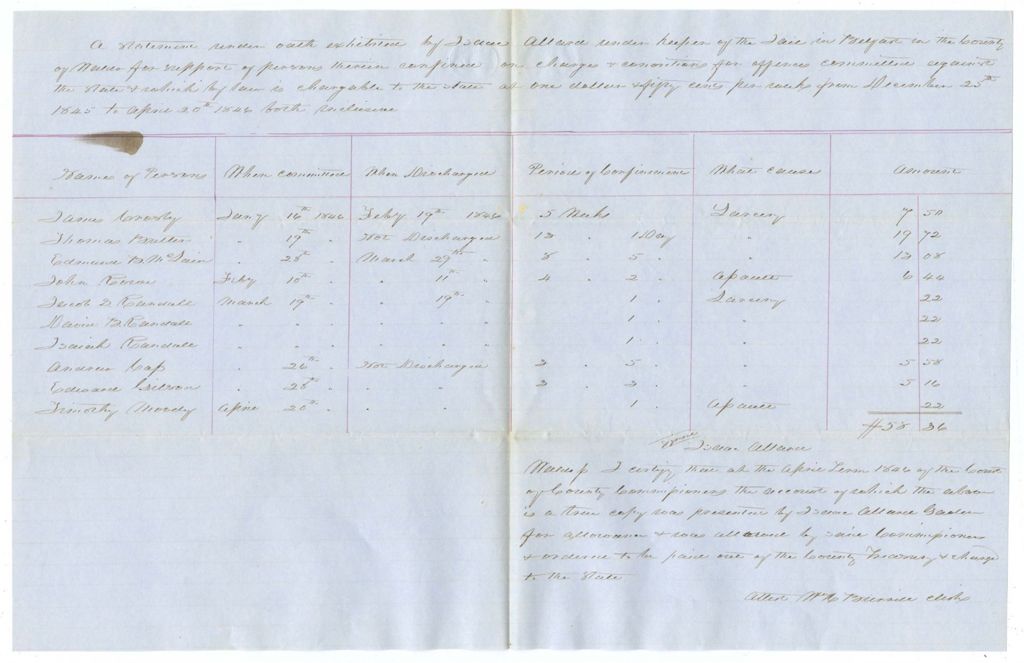 A Statement under oath exhibited by Isaac Allard under keeper of the Jail in Belfast in the County
of Waldo for support of persons therein confined on charges & convictions for offences committed against
the State & which by law is chargable to the State at one dollar & fifty cents per week from December 23th
1845 to April 20th 1846 both inclusive
Names of Persons When committed When Discharged Period of Confinement What cause Amount
James Crosby Jany 16th 1846 Feby 19th 1846 5 Weeks Larceny 7 50
Thomas 〃 19th 〃 Not Discharged 13 〃 1 Day 〃 19 72
Edmund B. McLain 〃 28th 〃 March 29th 〃 8 〃 5 〃 〃 13 08
John Feby 10th 〃 〃 11th 〃 4 〃 2 〃 Assault 6 44
Jacob D Randall March 19th 〃 〃 19th 〃 1 〃 Larceny 22
David B Randall 〃 〃 〃 〃 〃 〃 1 〃 〃 22
Isaiah Randall 〃 〃 〃 〃 〃 〃 1 〃 〃 22
Andrew 〃 26th 〃 Not Discharged 3 〃 5 〃 〃 5 58
Edward 〃 28th 〃 〃 〃 3 〃 3 〃 〃 5 16
Timothy Moody April 20th 〃 〃 〃 1 〃 Assault 22
$58 36
Isaac Allard
Waldo ss I certify that at the April Term 1846 of the Court
of County Commissioners the account of which the above
is a true copy was presented by Isaac Allard Gaoler
for allowance & was allowed by said Commissioners
& ordered to be paid out of the County Treasury & charge
to the State
Attest Wm H Burrill Clerk